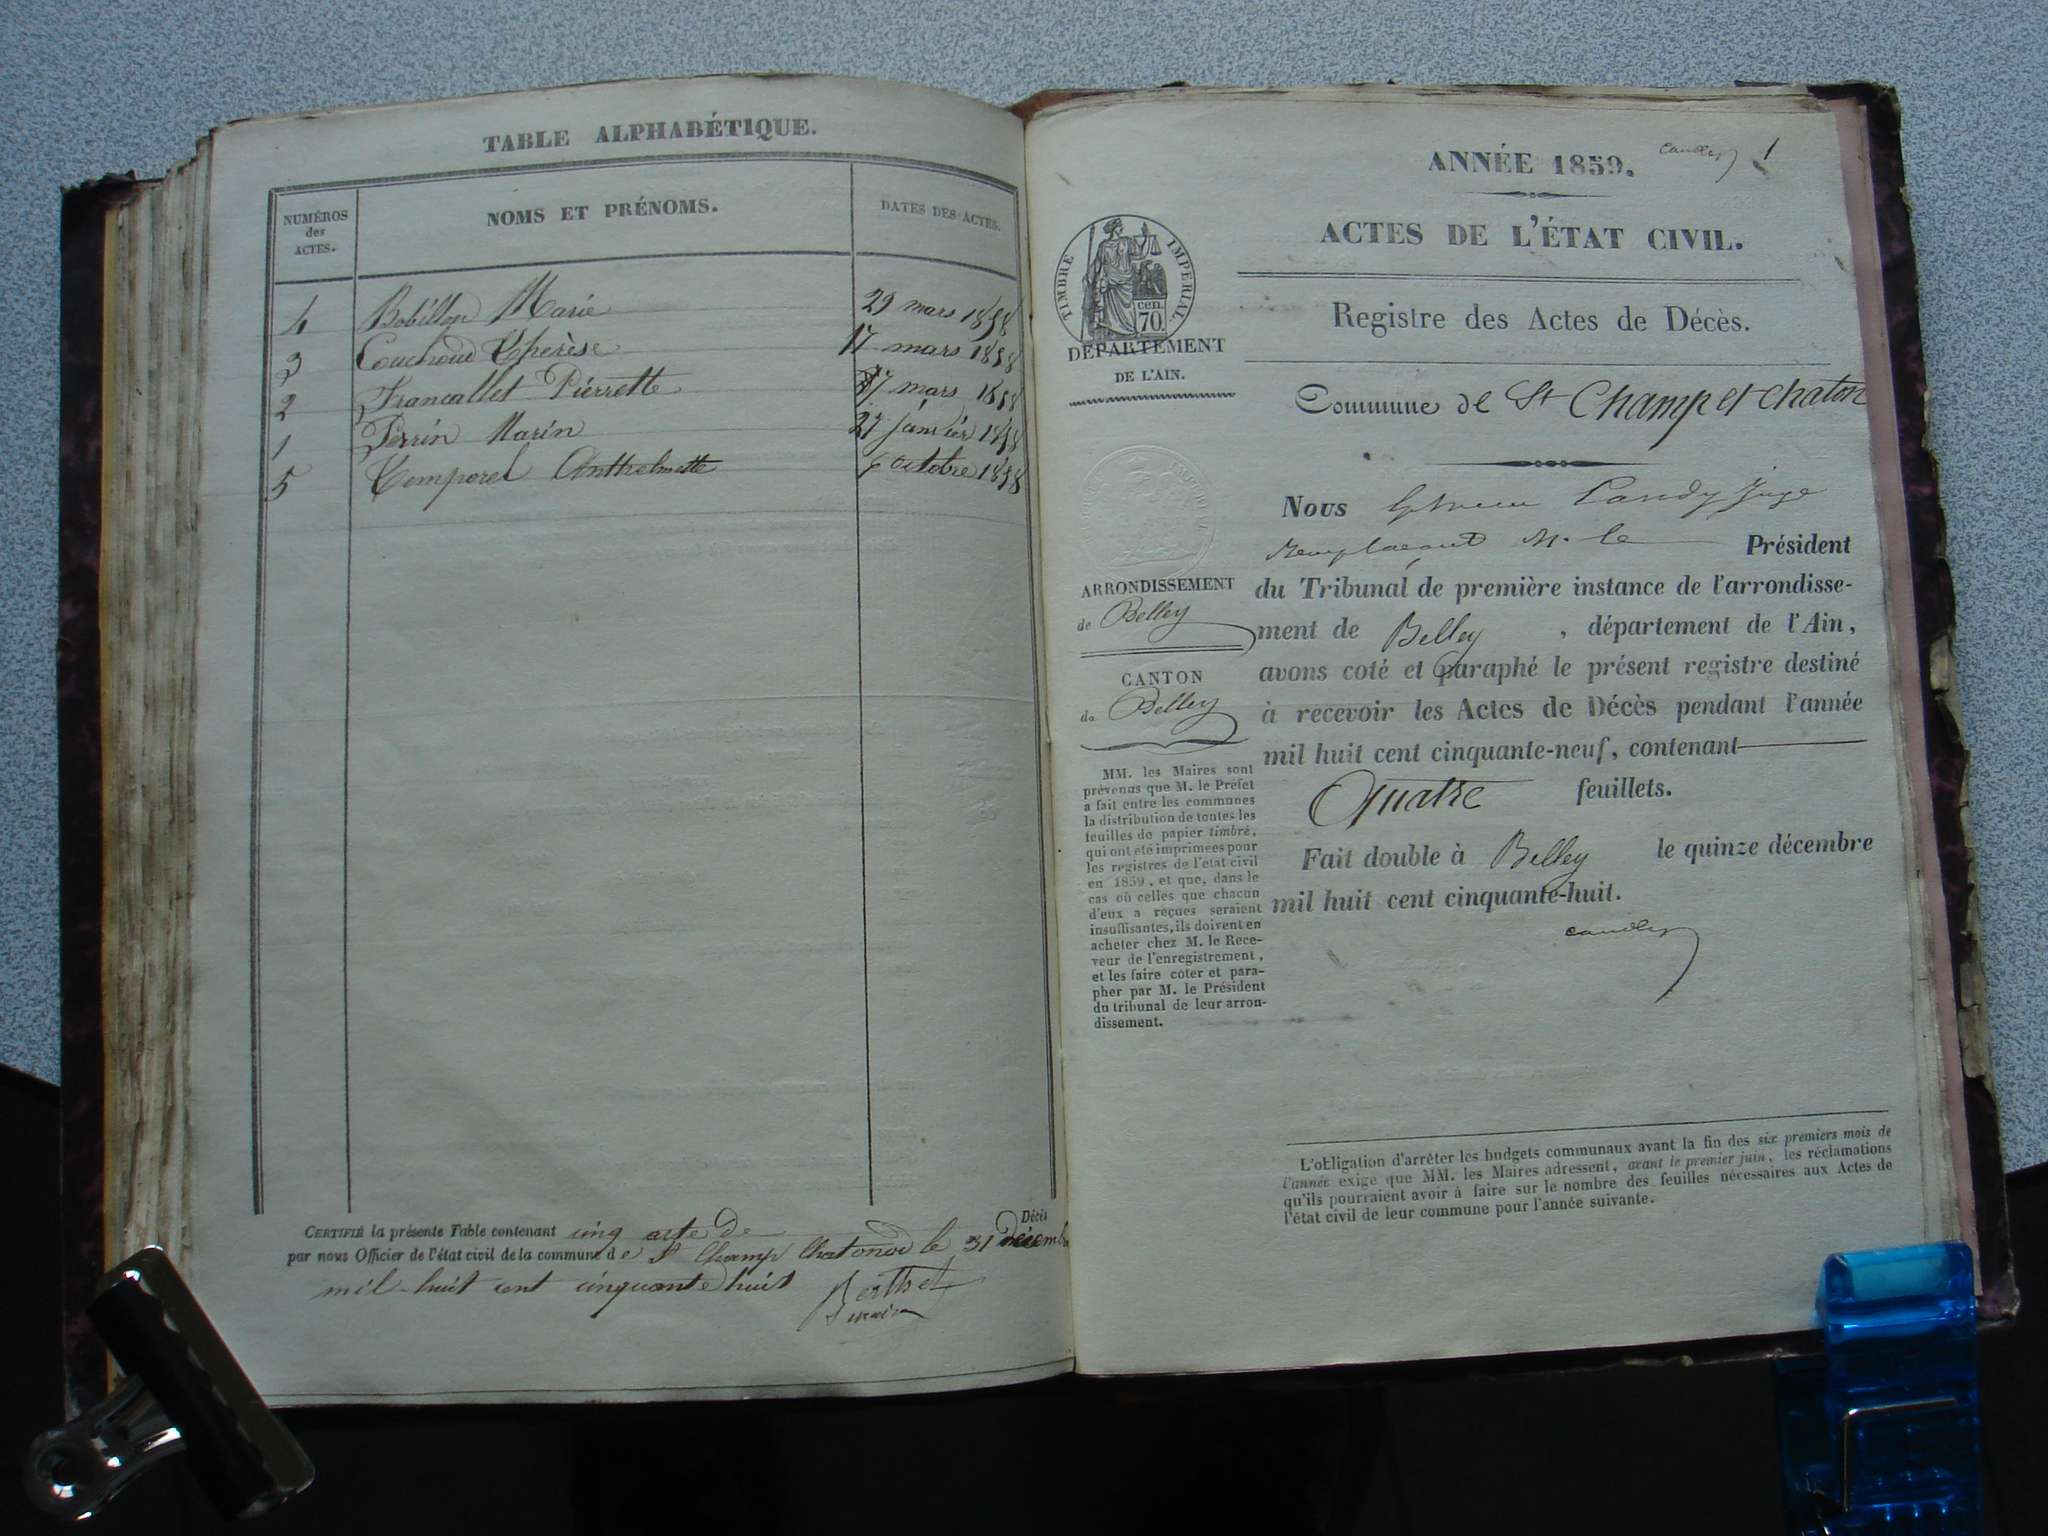 TABLE ALPHABÉTIQUE.
NUMÉROS
des
ACTES.
NOMS ET PRÉNOMS.
DATES DES ACTES.
4 Bobillon Marie 29 mars 1858
3 Couchoud Therèse 17 mars 1858
2 Francallet Pierrette 17 mars 1858
1 Perrin Marin 27 janvier 1858
5 Temporel Anthelmette 6 octobre 1858
CERTIFIÉ la présente Table contenant cinq acte de Décès
par nous Officier de l'état civil de la commune de St Champ Chatonod le 31 Décembre
mil-huit cent cinquante huit Berthet
maire
candy 1
ANNÉE 1859.
ACTES DE L'ÉTAT CIVIL.
Registre des Actes de Décès.
TIMBRE IMPÉRIAL.
cen.
70
DÉPARTEMENT
DE L'AIN.
Commune de St Champ et chaton
ARRONDISSEMENT
de Belley
CANTON
de Belley
MM. les Maires sont
prévenus que M. le Préfet
a fait entre les communes
la distribution de toutes les
feuilles de papier timbré,
qui ont été imprimées pour
les registres de l'état civil
en 1859, et que, dans le
cas où celles que chacun
d'eux a reçues seraient
insuffisantes, ils doivent en
acheter chez M. le Rece-
veur de l'enregistrement,
et les faire coter et para-
pher par M. le Président
du tribunal de leur arron-
dissement.
Nous Candy Juge
Remplacant M. le Président
du Tribunal de première instance de l'arrondisse-
ment de Belley, département de l'Ain,
avons coté et paraphé le présent registre destiné
à recevoir les Actes de Décès pendant l'année
mil huit cent cinquante-neuf, contenant
Quatre feuillets.
Fait double à Belley le quinze décembre
mil huit cent cinquante-huit.
candy
L'obligation d'arrêter les budgets communaux avant la fin des six premiers mois de
l'année exige que MM. les Maires adressent, avant le premier juin, les réclamations
qu'ils pourraient avoir à faire sur le nombre des feuilles nécessaires aux Actes de
l'état civil de leur commune pour l'année suivante.